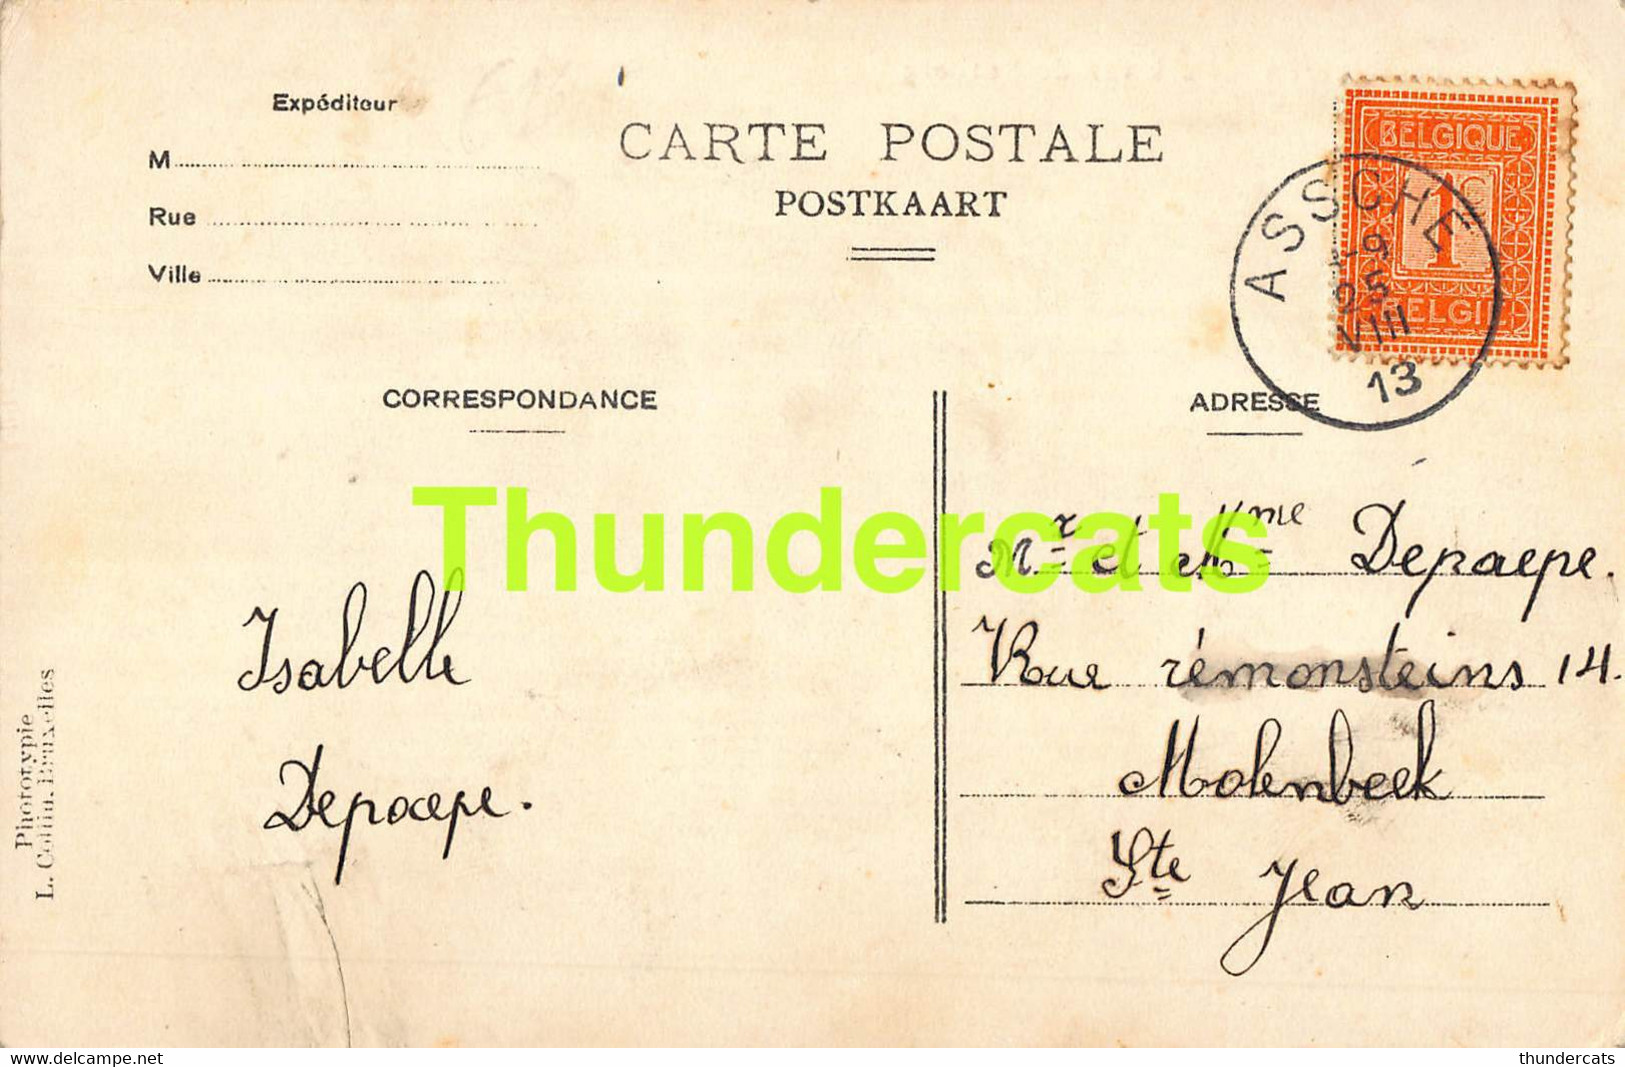 Expéditeur
M
Rue
Ville
CARTE POSTALE
POSTKAART
BELGIQUE
1c
BELGIË
ASSCHE
25
VIII
13
CORRESPONDANCE
ADRESSE
Thundercats
Isabelle
Depaepe.
Mr et Mme Depaepe.
Rue rémonsteins 14.
Molenbeek
Ste Jean
Phototypie
L. Collin, Bruxelles
delcampe.net
thundercats